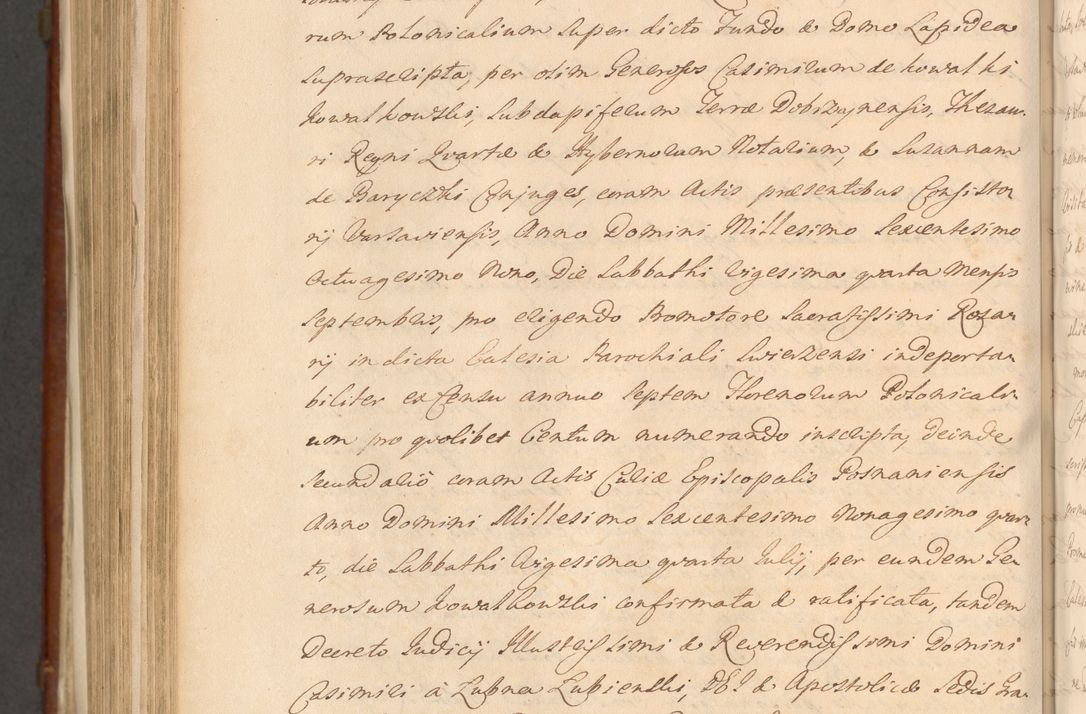 rum Polonicalium super dicto Fundo & Domo Lapidea
suprascripta, per olim Generosos Casimirum de Kowalki
Kowalkowski, Subdapiferum Terræ Dobrzynensis, Thesau-
ri Regni Quartæ & Hybernorum Notarium, & Susannam
de Baryczki Conjuges, coram Actis præsentibus Consisto-
rij Varsaviensis, Anno Domini Millesimo Sexcentesimo
Octuagesimo Nono, Die Sabbathi Vigesima quarta Mensis
Septembris, pro erigendo Promotore Sacratissimi Rosa-
rij in dicta Ecclesia Parochiali Swierzensi indeporta-
biliter ex Censu annuo septem Florenorum Polonicali-
um pro quolibet Centum numerando inscripta, deinde
secundario coram Actis Curiæ Episcopalis Posnaniensis
Anno Domini Millesimo Sexcentesimo Nonagesimo quar-
to, die Sabbathi Vigesima quarta Julij, per eundem Ge-
nerosum Kowalkowski confirmata & ratificata, tandem
Decreto Judicij Illustrissimi & Reverendissimi Domini
Casimiri à Lubna Lubienski, DEI & Apostolicæ Sedis Gra-